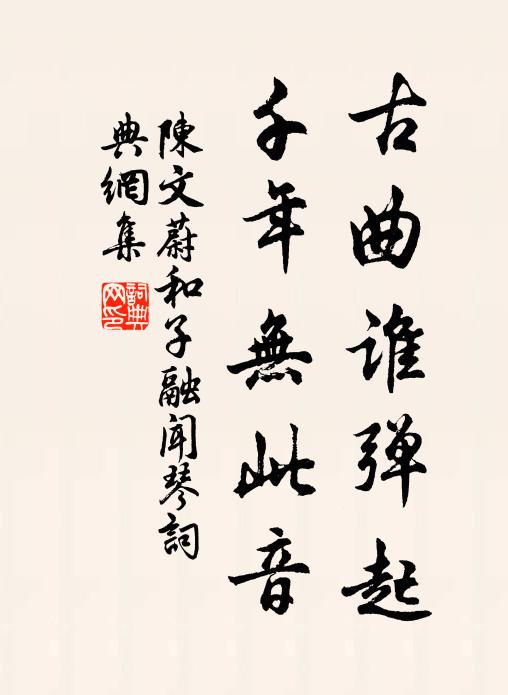 古曲谁弹起
千年無此音
陳文蔚和子融闻琴詞
典網集
詞典网印